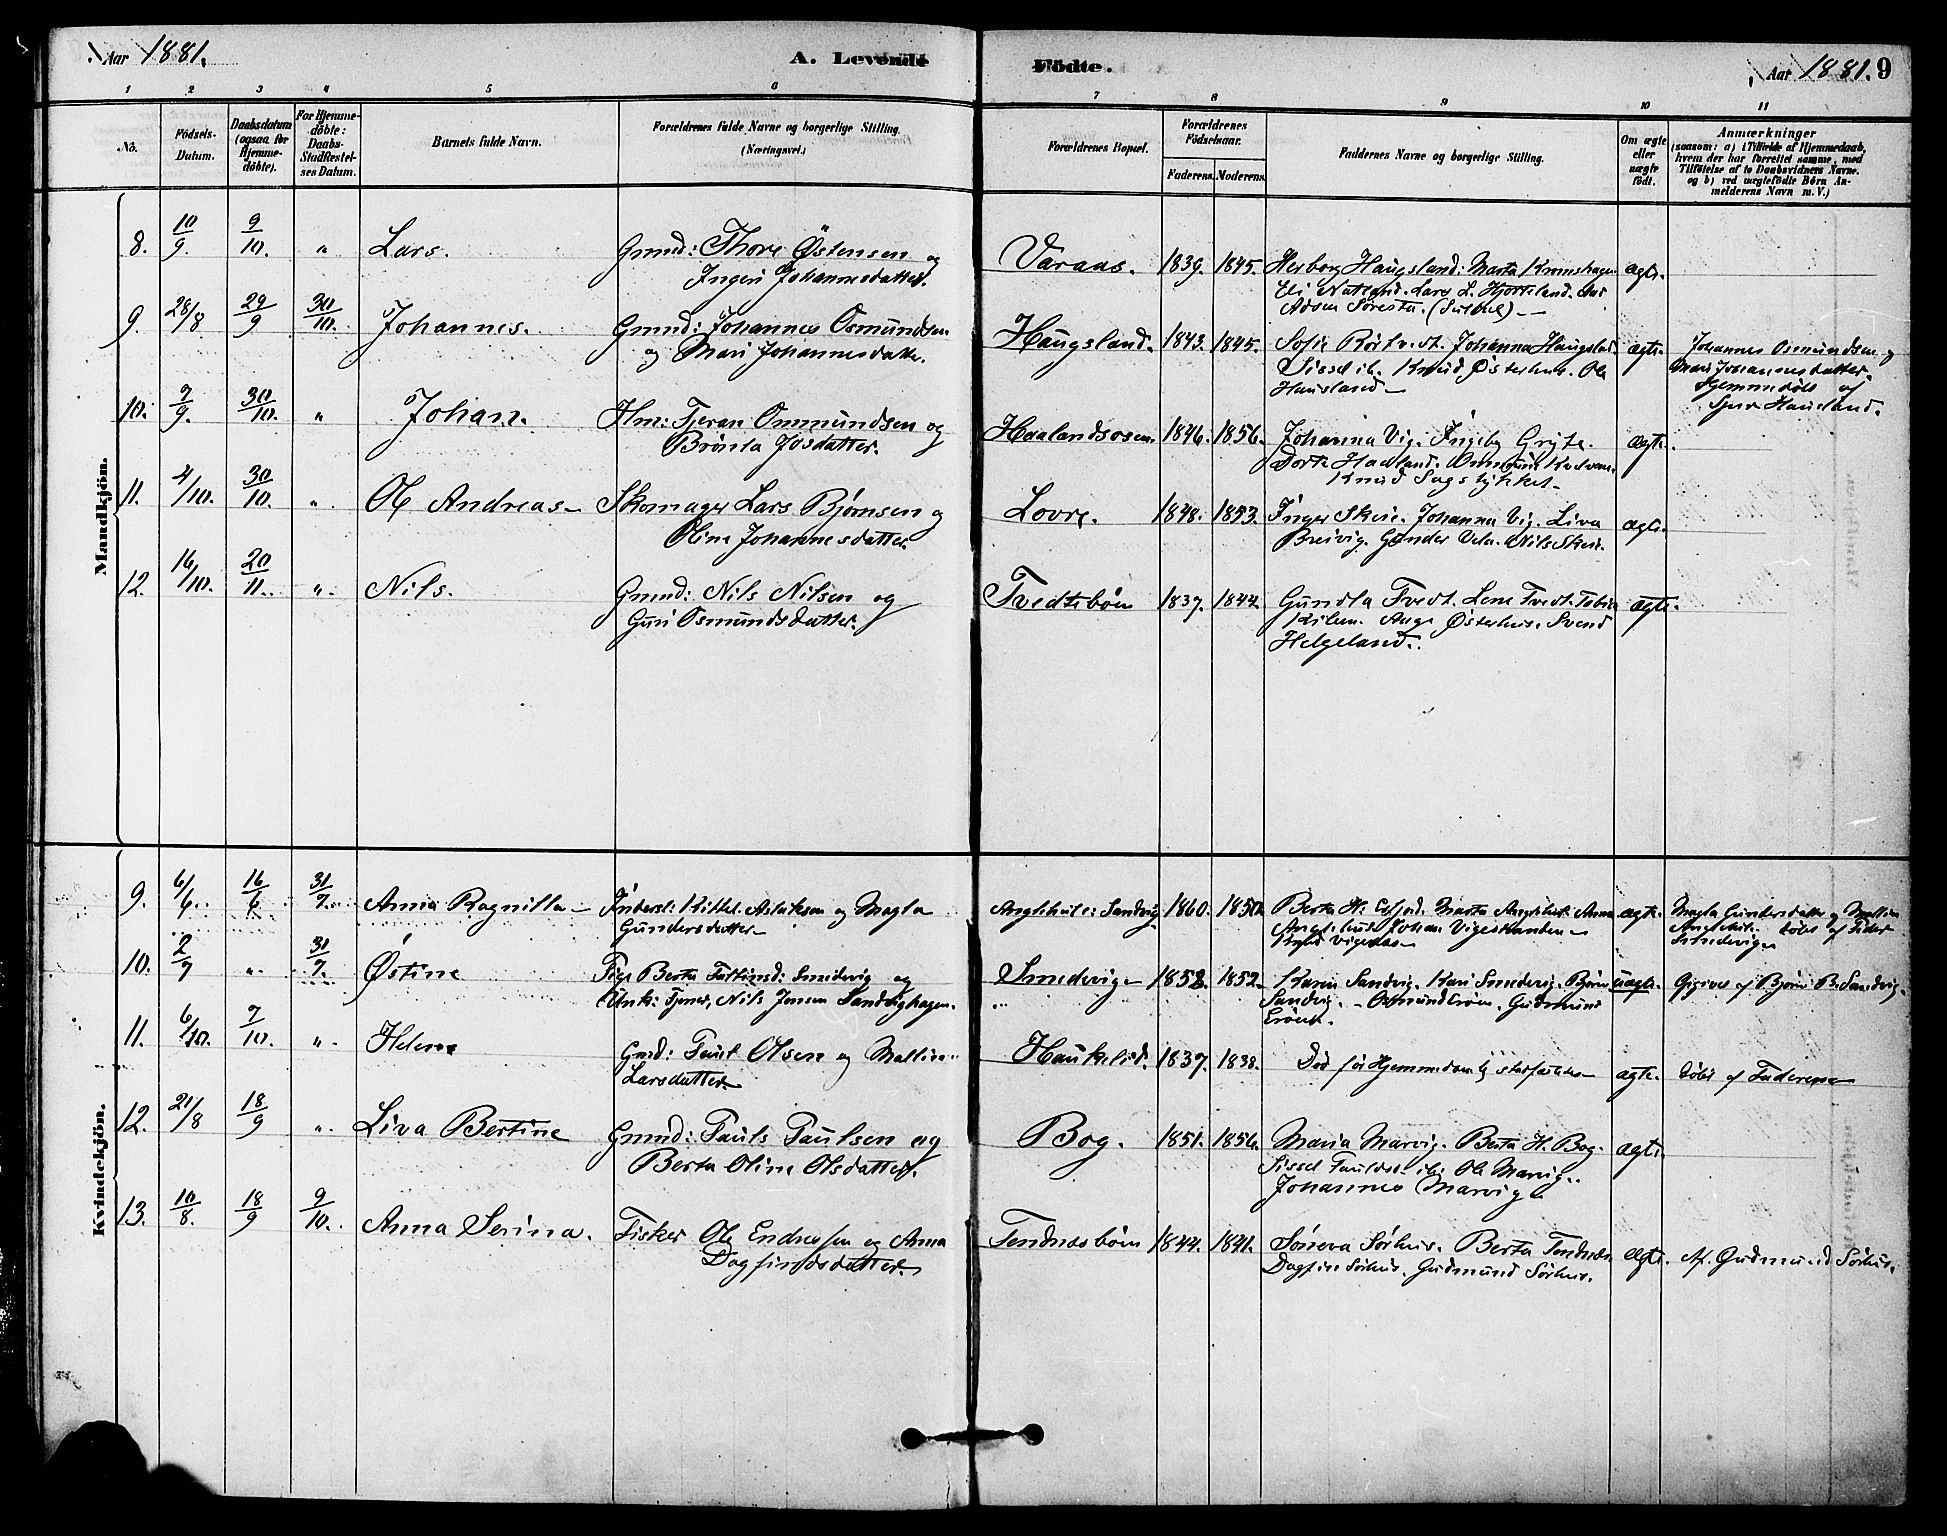 Aar 1881.
A. Levende
Födte.
Aar 1881. 9
1 2 3 4 5 6 7 8 9 10 11
No.
Födsels-Datum.
Daabsdatum (ogsaa for Hjemme-döbte).
For Hjemme-döbte: Daabs-Stadfæstel-ses Datum.
Barnets fulde Navn.
Forældrenes fulde Navne og borgerlige Stilling. (Næringsvei.)
Forældrenes Bopæl.
Forældrenes Födselsaar.
Faderens. Moderens.
Faddernes Navne og borgerlige Stilling.
Om ægte eller uægte födt.
Anmærkninger
(saasom: a) i Tilfælde af Hjemmedaab,
hvem der har forrettet samme, med
Tilföielse af to Daabsvidners Navne.
og b) ved uægtefödte Börn An-
melderens Navn m. V.)
Mandkjön.
8. 10/9. 9/10. " Lars. Gmnd: Thore Östensen og
Ingeri Johannesdatter.
Varaas. 1839. 1845. Herborg Haugsland: Marta
Eli Natland. Lars L. Hjorteland.
ægte.
9. 28/8 29/9 30/10. Johannes. Gmnd: Johannes Osmundsen
og Mari Johannesdatter.
Haugsland. 1843. 1845. Sofie Johanna
Sissel ib. Knud Østerhus. Ole
Hausland
ægte. Johannes Osmundsen og
Mari Johannesdatter.
Hjemmedøbt af
Hausland.
10. 7/9. 30/10. " Johan. Hm: Tjeran Ommundsen og
Brönla Josdatter.
Haalandsosen. 1846. 1856. Johanna Vig. Ingeby
Dorte Haaland.
Knud
ægte.
11. 4/10. 30/10. " Ole Andreas Skomager Lars Bjørnsen og
Oline Johannesdatter.
Lovre. 1848. 1853. Inger Skeie. Johanna Vig. Liva
Breivig. Gunder Nils Skeie.
ægte.
12. 16/10. 20/11. " Nils. Gmnd: Nils Nilsen og
Guri Osmundsdatter.
Tvedtebøen 1837. 1844 Gundla Tvedt. Lene Tvedt.
Aage Østerhus. Svend
Helgeland.
ægte.
Kvindekjön.
9. 6/6. 16/6 31/7. Anna Ragnilla Inderst: Kittel Aslaksen og Magla
Gundersdatter
Sandvig 1860. 1850. Berta H. Marta Anna
Johan
ægte. Magla Gundersdatter og
döbt af Peder
Smedevig
10. 2/7 " 31/7. Østine Pige Berta Smedevig og
Unk: Tjener, Nils Jensen Sandvighagen.
Smedevig 1852. 1852. Karen Sandvig. Kari Smedevig. Björn
Sandvig. Gudmund
uægte. af Björn B. Sandvig.
11. 6/10. 7/10. " Helene Gmd: Paul Olsen og Malline
Larsdatter
Haukelid. 1837. 1838. Död för Hjemmedaab stadfæstedes
ægte. Döbt af Faderen
12. 21/8 18/9 " Liva Bertine Gmnd: Pauls Paulsen og
Berta Oline Olsdatter.
Bog. 1851. 1856. Maria Marvig. Berta H. Bog.
Sissel ib: Ole Marvig.
Johannes Marvig
ægte.
13. 10/8. 18/9 9/10. Anna Serina. Fisker Ole Endresen og Anna
Dagfindsdatter.
Tendnesbøen 1844. 1841. Söneva Sörhus. Berta Tendnes.
Dagfin Sörhus. Gudmund Sörhus.
ægte. Af. Gudmund Sörhus.